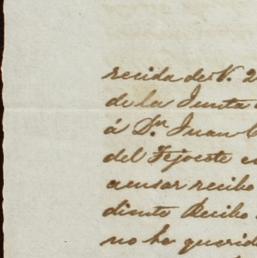 recida de V. 2
de la Junta
á Dn. Juan
del Tejoeste
acusar recibo
diente Recibo
no ha querid